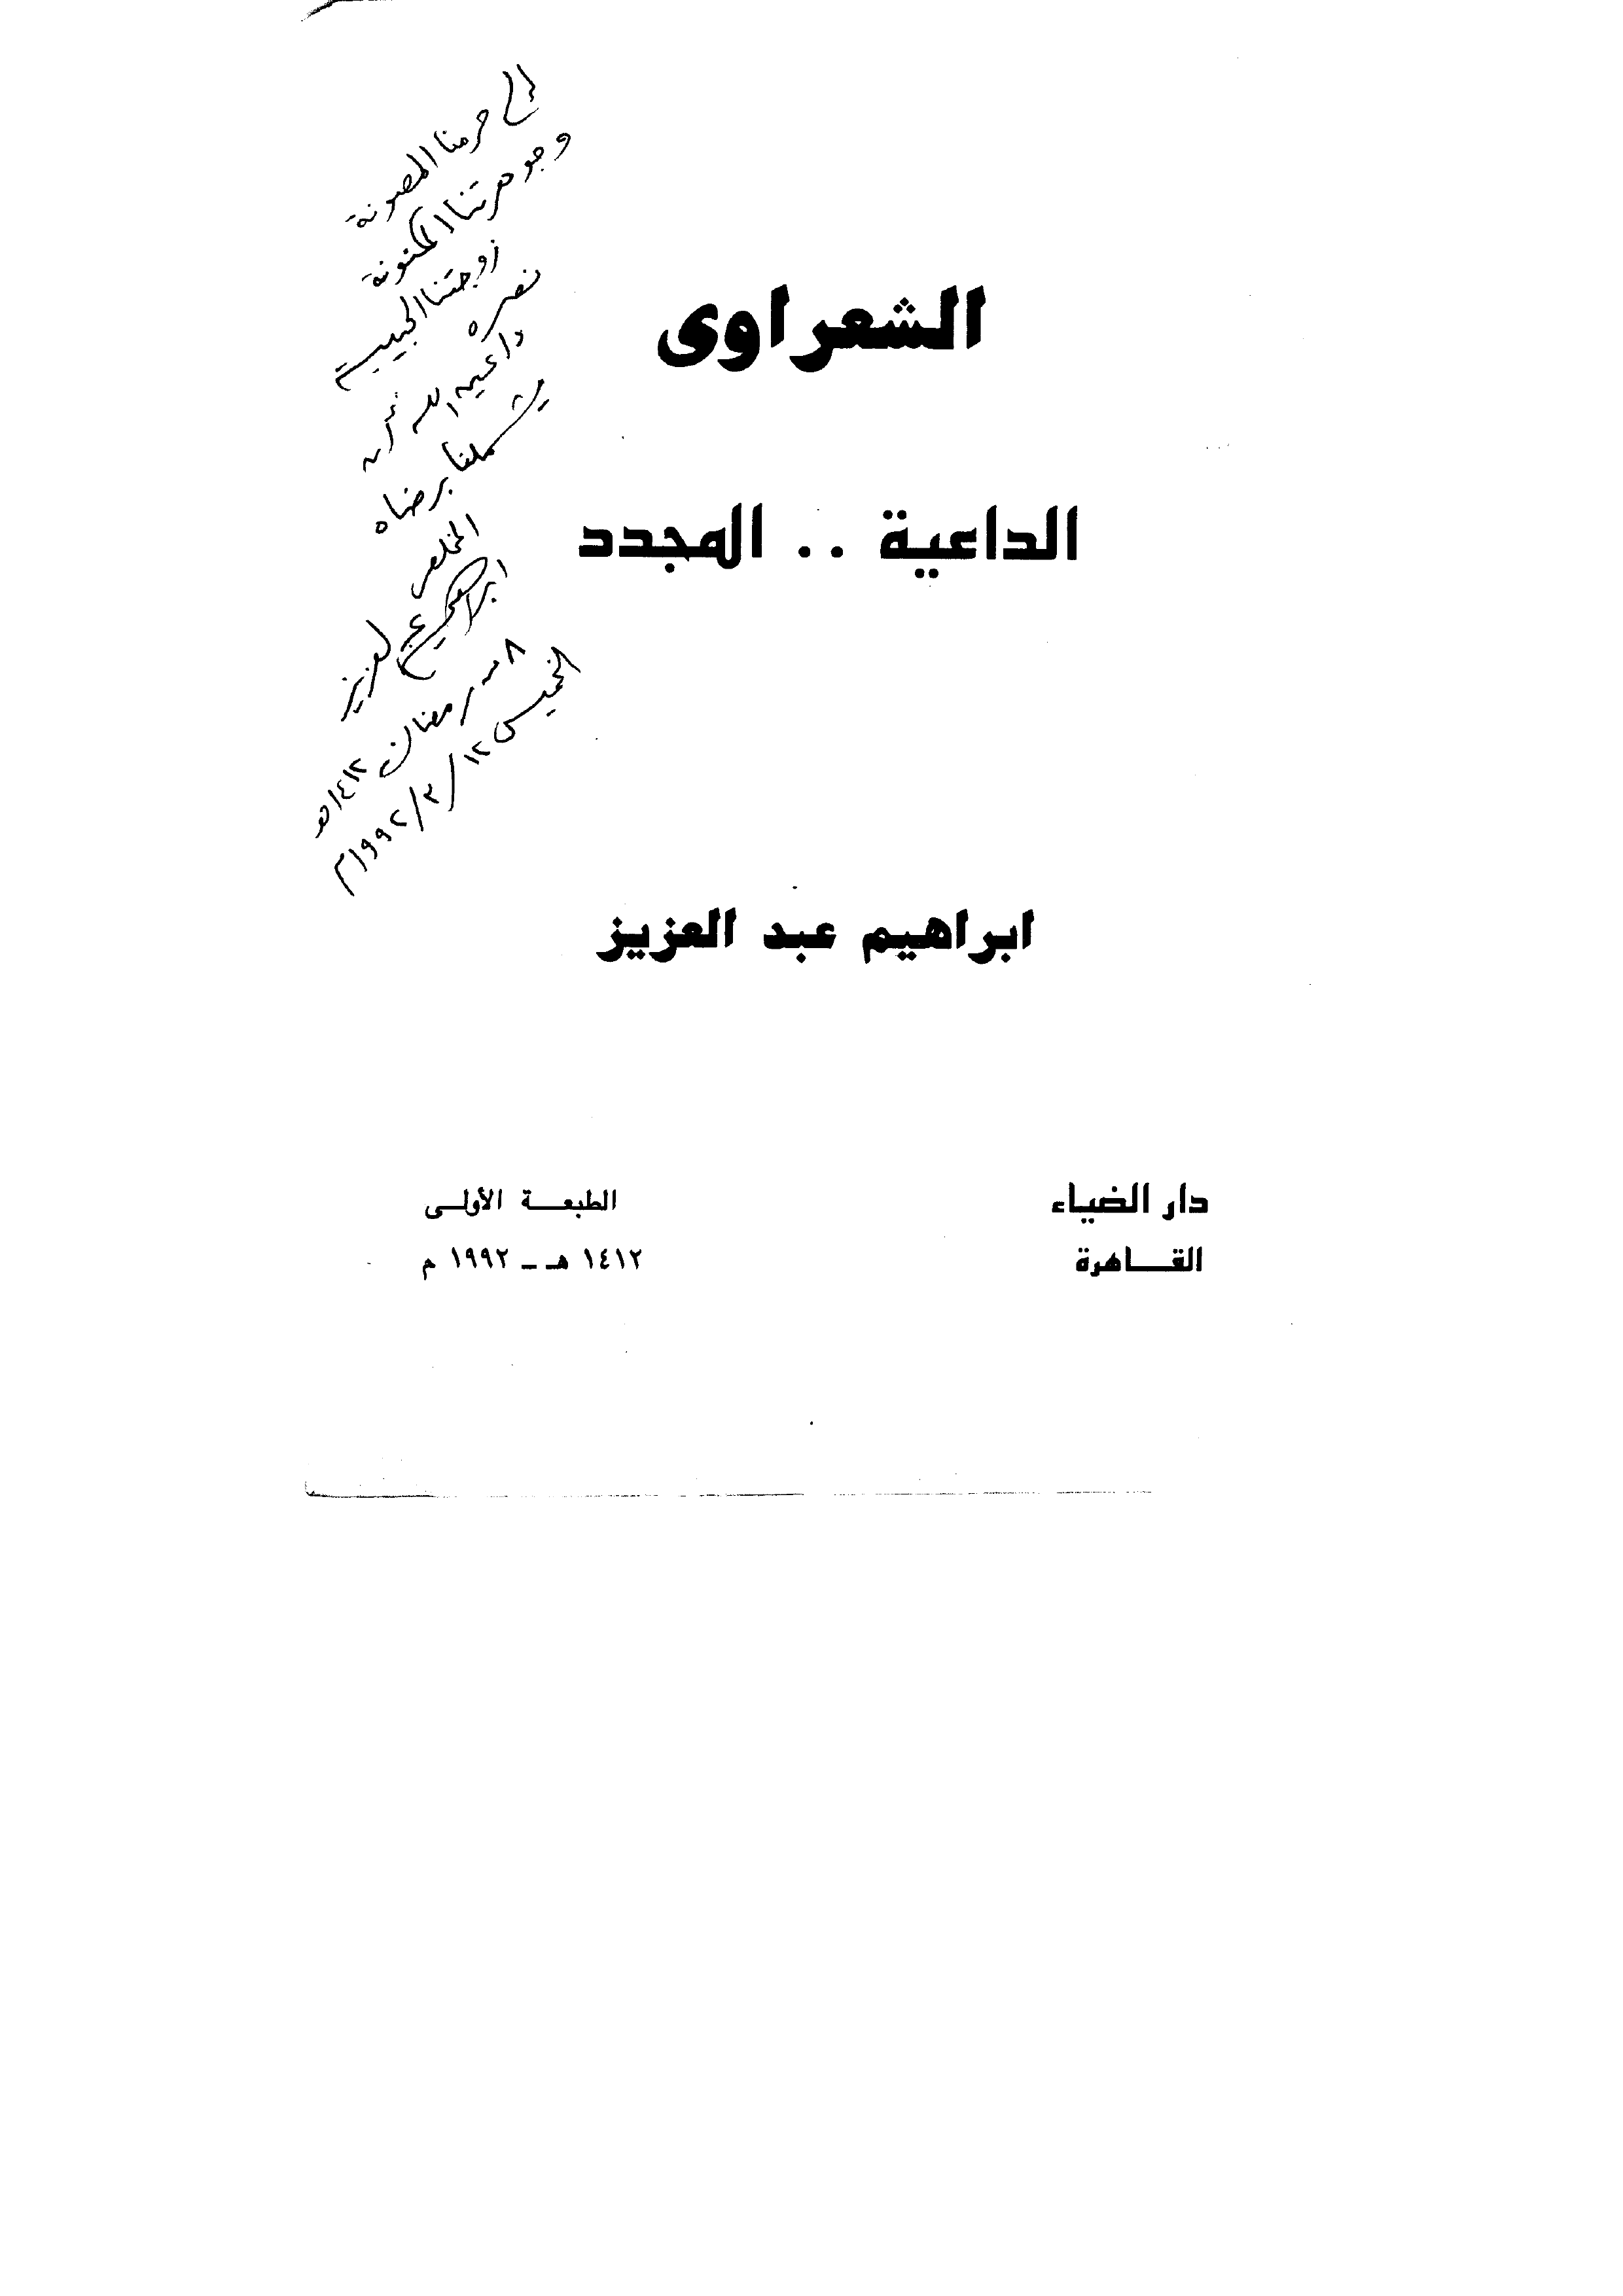 إلى حرمنا المصونة
وجوهرتنا المكنونة
زوجتنا الحبيبة
داعين الله أن
يشملنا برضاه
المخلص
ابراهيم عبد العزيز
٨ من رمضان ١٤١٢هـ
الخميس ١٢/٣/١٩٩٢م
الشعراوى
الداعية .. المجدد
ابراهيم عبد العزيز
دار الضياء
القــاهرة
الطبعــة الأولــى
١٤١٢ هـ ــ ١٩٩٢ م